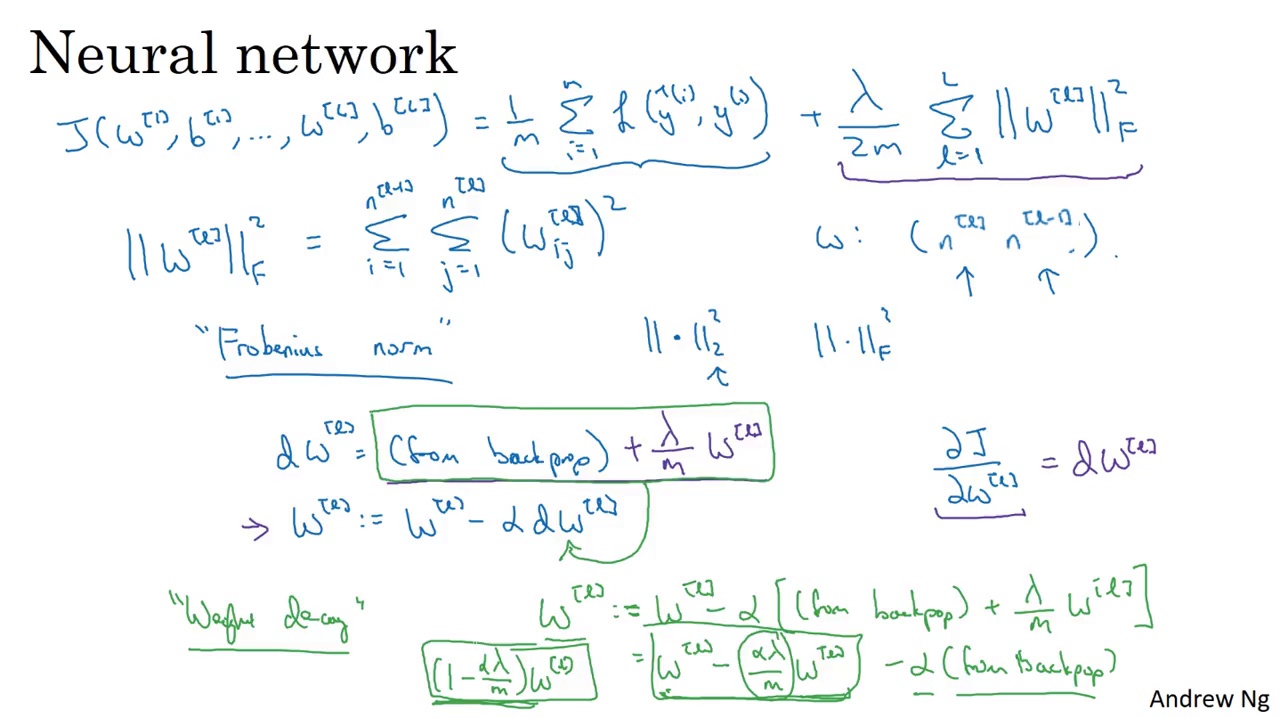 Neural network
J(w^[1], b^[1], ..., w^[L], b^[L]) = 1/m Σ_{i=1}^{n} ℒ(ŷ^(i), y^(i)) + λ/2m Σ_{l=1}^{L} ||w^[l]||_F^2
||w^[l]||_F^2 = Σ_{i=1}^{n^[l-1]} Σ_{j=1}^{n^[l]} (w_ij^[l])^2 w: (n^[l] n^[l-1]).
"Frobenius norm" ||·||_2^2 ||·||_F^2
↑ ↑ ↑
dw^[l] = (from backprop) + λ/m w^[l] ∂J/∂w^[l] = dw^[l]
→ w^[l] := w^[l] - α dw^[l]
"Weight decay" w^[l] := w^[l] - α [(from backpop) + λ/m w^[l]]
(1 - αλ/m) w^[l] = w^[l] - αλ/m w^[l] - α (from backpop)
Andrew Ng